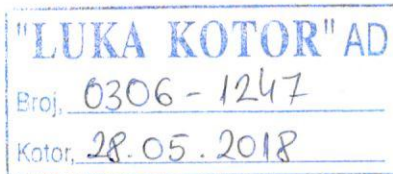 "LUKA KOTOR" AD
Broj, 0306-1247
Kotor, 28.05.2018